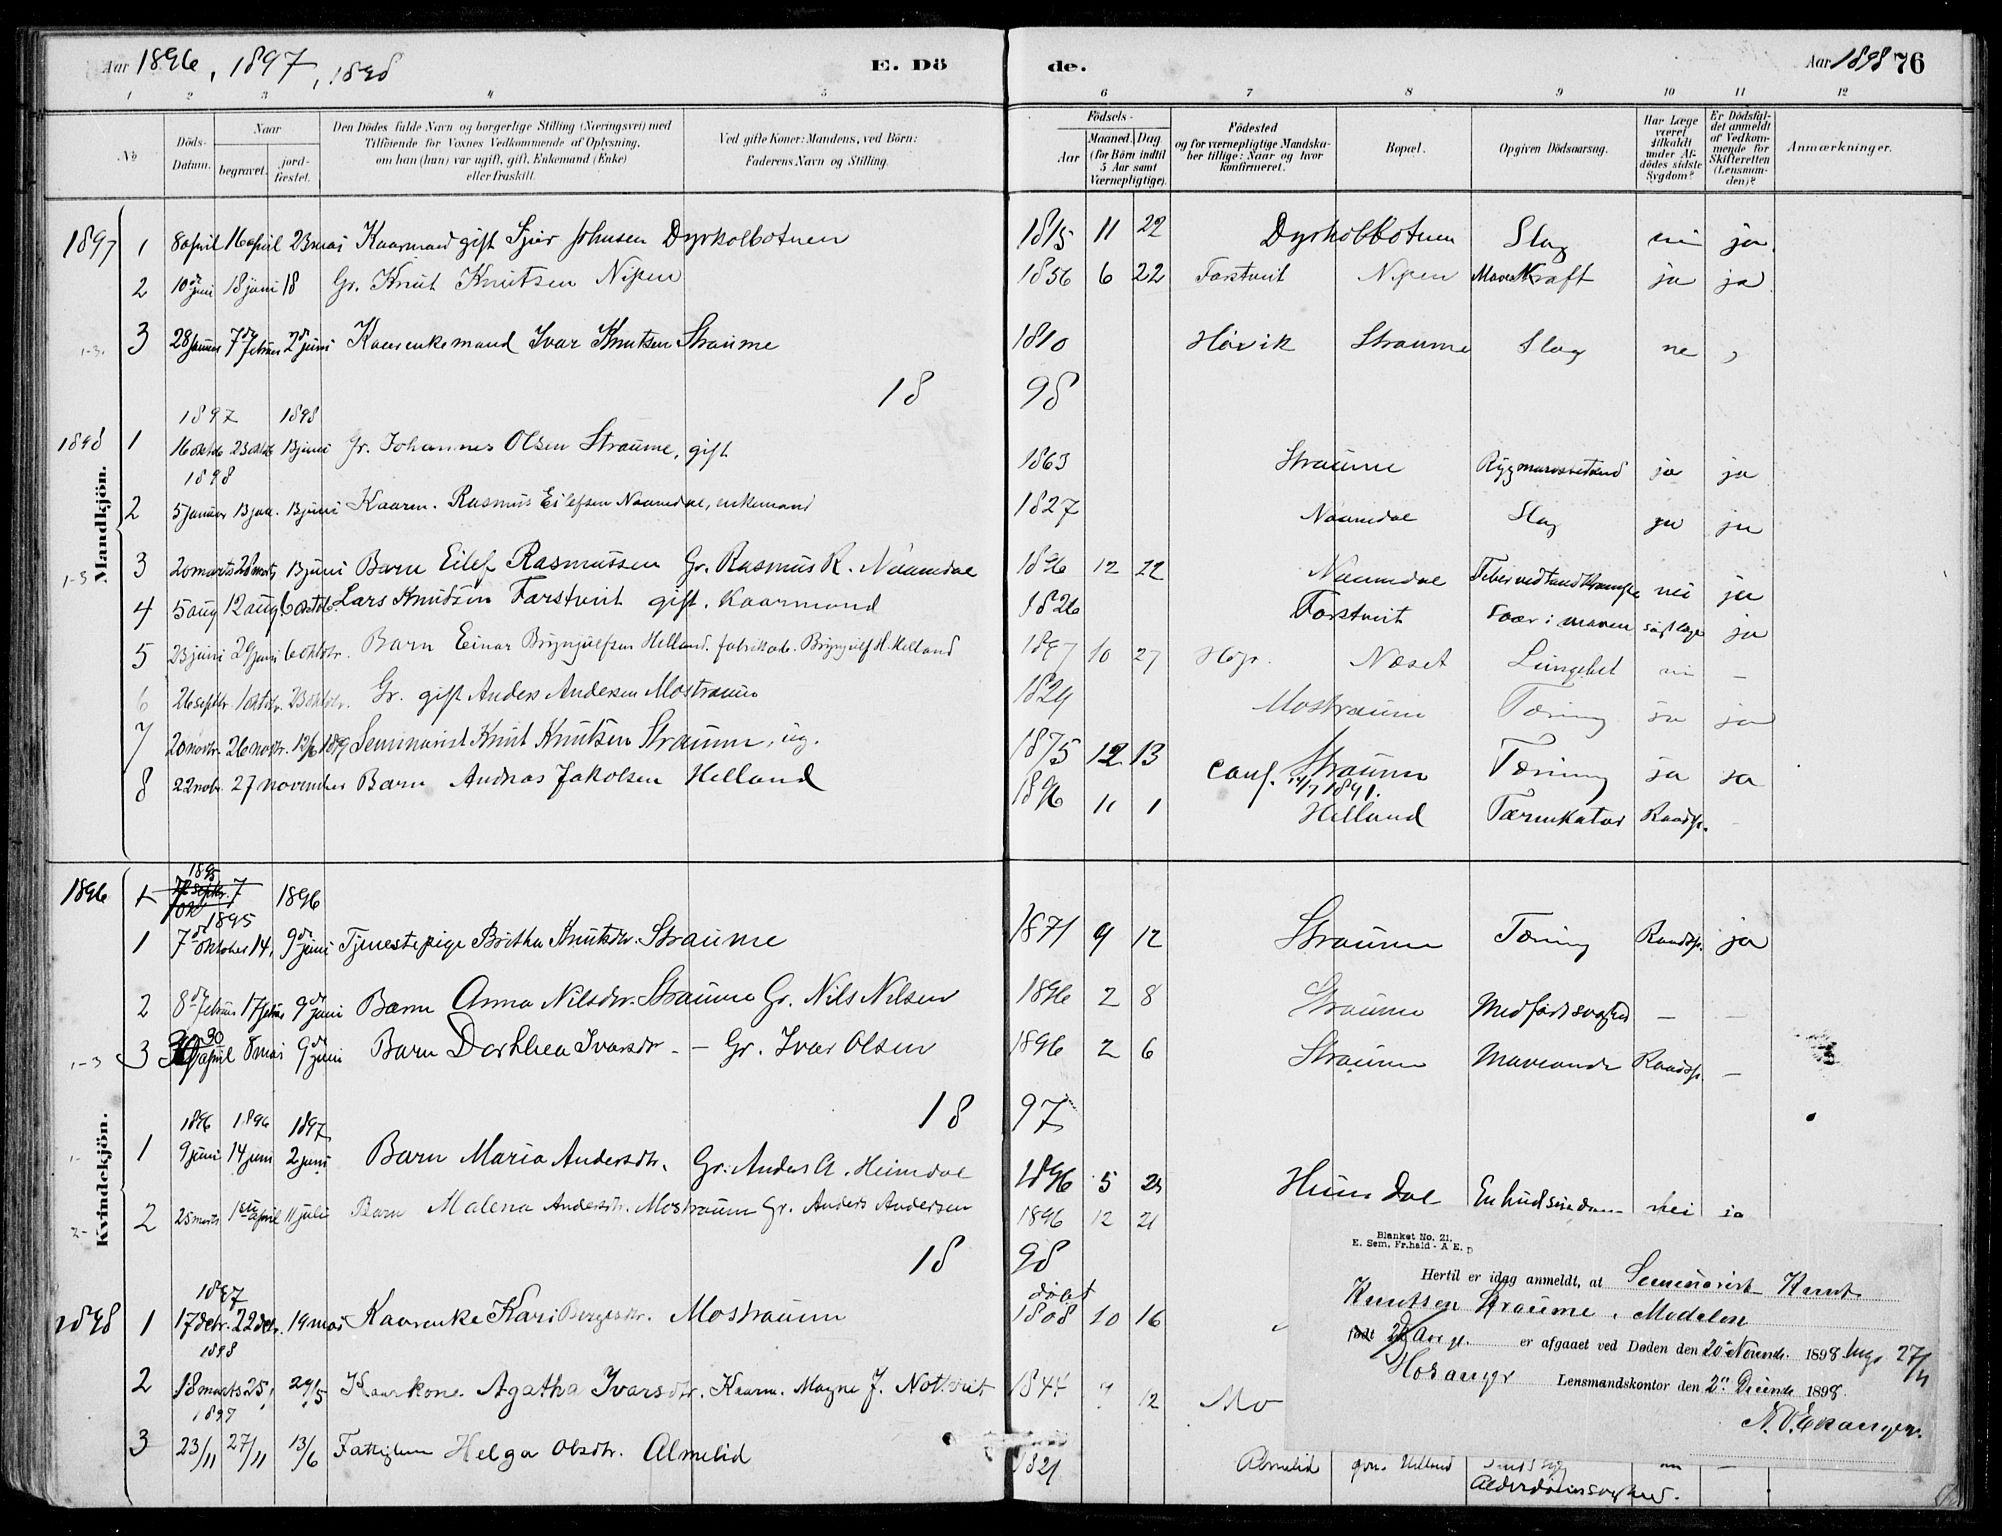 Aar 1896, 1897, 1898 E. Dö de. Aar 1898 76
1 2 3 4 5 6 7 8 9 10 11 12
No Döds-Datum. Naar begravet. jordfæstet. Den Dödes fulde Navn og borgerlige Stilling (Næringsvei) med Tilföiende for Voxnes Vedkommende af Oplysning, om han (hun) var ugift, gift, Enkemand (Enke) eller fraskilt. Ved gifte Koner: Mandens, ved Börn: Faderens Navn og Stilling. Födsels- Aar Maaned. Dag (for Börn indtil 5 Aar samt Værnepligtige). Födested og for værnepligtige Mandskaber tillige: Naar og hvor konfirmeret. Bopæl. Opgiven Dödsaarsag. Har Læge været tilkaldt under Afdödes sidste Sygdom? Er Dödsfaldet anmeldt af Vedkommende for Skifteretten (Lensmanden)? Anmærkninger.
Mandkjön.
1897 1 8 april 16 april 23 mai Kaarmand gift Sjur Johnsen Dyrkolbotnen 1815 11 22 Dyrkolbotnen Slag nei ja
2 10de juni 18 juni 18 Gr. Knut Knutsen Nipen 1856 6 22 Farstveit Nipen Mavekræft ja ja
1-3. 3 28 januar 7de februar 2d juni Kaarenkemand Ivar Knutsen Straume 1810 Høvik Straume Slag ne
1898
1897 1898
1898 1 16 oktob 23 oktob 13 juni Gr. Johannes Olsen Straume, gift 1863 Straume Rygmarvsbetend ja ja
1898
2 5 januar 13 jan. 13 juni Kaarm. Rasmus Eilefsen Naamdal, enkemand 1827 Naamdal Slag ja ja
1-3 3 20 marts 28 marts 13 juni Barn Eilef Rasmussen Gr. Rasmus R. Naamdal 1896 12 22 Naamdal Feber ved tandkrampe nei ja
4 5 aug 12 aug 6 oktob Lars Knudsen Farstveit gift. Kaarmand 1826 Farstveit saar i maven ja
5 23 juni 29 juni 6 oktbr. Barn Einar Brynjulfsen Helland. fabrikarb. Brynjulf H. Helland 1897 10 27 Næset Lungebet nei –
6 26 septbr. 1 oktbr. 23 oktbr. Gr. gift Anders Andersen Mostraum 1829 Mostraum Tæring ja ja
7 20 novbr. 26 novbr. 12/6 1899 Seminarist Knut Knutsen Straume, ug. 1875 12 13 conf. Straume 1891. Tæring ja ja
8 22 nobr. 27 november Barn Andreas Jakobsen Helland 1896 11 1 Helland Tarmkatar Raadsp. –
Kvindekjön.
1896 1895 1896
1895
1 7de oktober 14, 9de juni Tjenestepige Britha Knutsdtr. Straume 1871 9 12 Straume Tæring Raadsp. ja
2 8de februar 17 februar 9de juni Barn Anna Nilsdtr. Straume Gr. Nils Nilsen 1896 2 8 Straume Medfødt svaghed – –
1-3 3 30 april 8 mai 9de juni Barn Dorthea Ivarsdtr – – Gr. Ivar Olsen 1896 2 6 Straume Maveonde Raadsp. –
1897
1896 1896 1897
1 9 juni 14 juni 2 juni Barn Maria Andersdtr. Gr. Anders A. Heimdal 1896 5 Heimdal nei ja
2 25 marts 1ste april 11 juli Barn Malena Andersdtr. Mostraum Gr. Anders Andersen 1896 12 21
1898
1897 døbt
1898 1 17 debr. 22 debr. 19 mai Kaarenke Kari Bergesdtr. Mostraum 1808 10 16
1898
2 18 marts 25, 29/5 Kaarkone Agatha Ivarsdtr. Kaarm. Magne J. Nottveit 1844 12 Mo
1897
3 23/11 27/11 13/6 Fattiglem Helga Olsdtr. Almelid 1821 Almelid Helland –
Alderdomssvaghed.
Blanket No. 21.
E. Sem, Fr.hald - A E. D
Hertil er idag anmeldt, at Seminarist Knut
Knutsen Straume, Modalen
født er afgaaet ved Døden den 20 Novemb. 1898 27/11
Hosanger Lensmandskontor den 2 Decemb 1898.